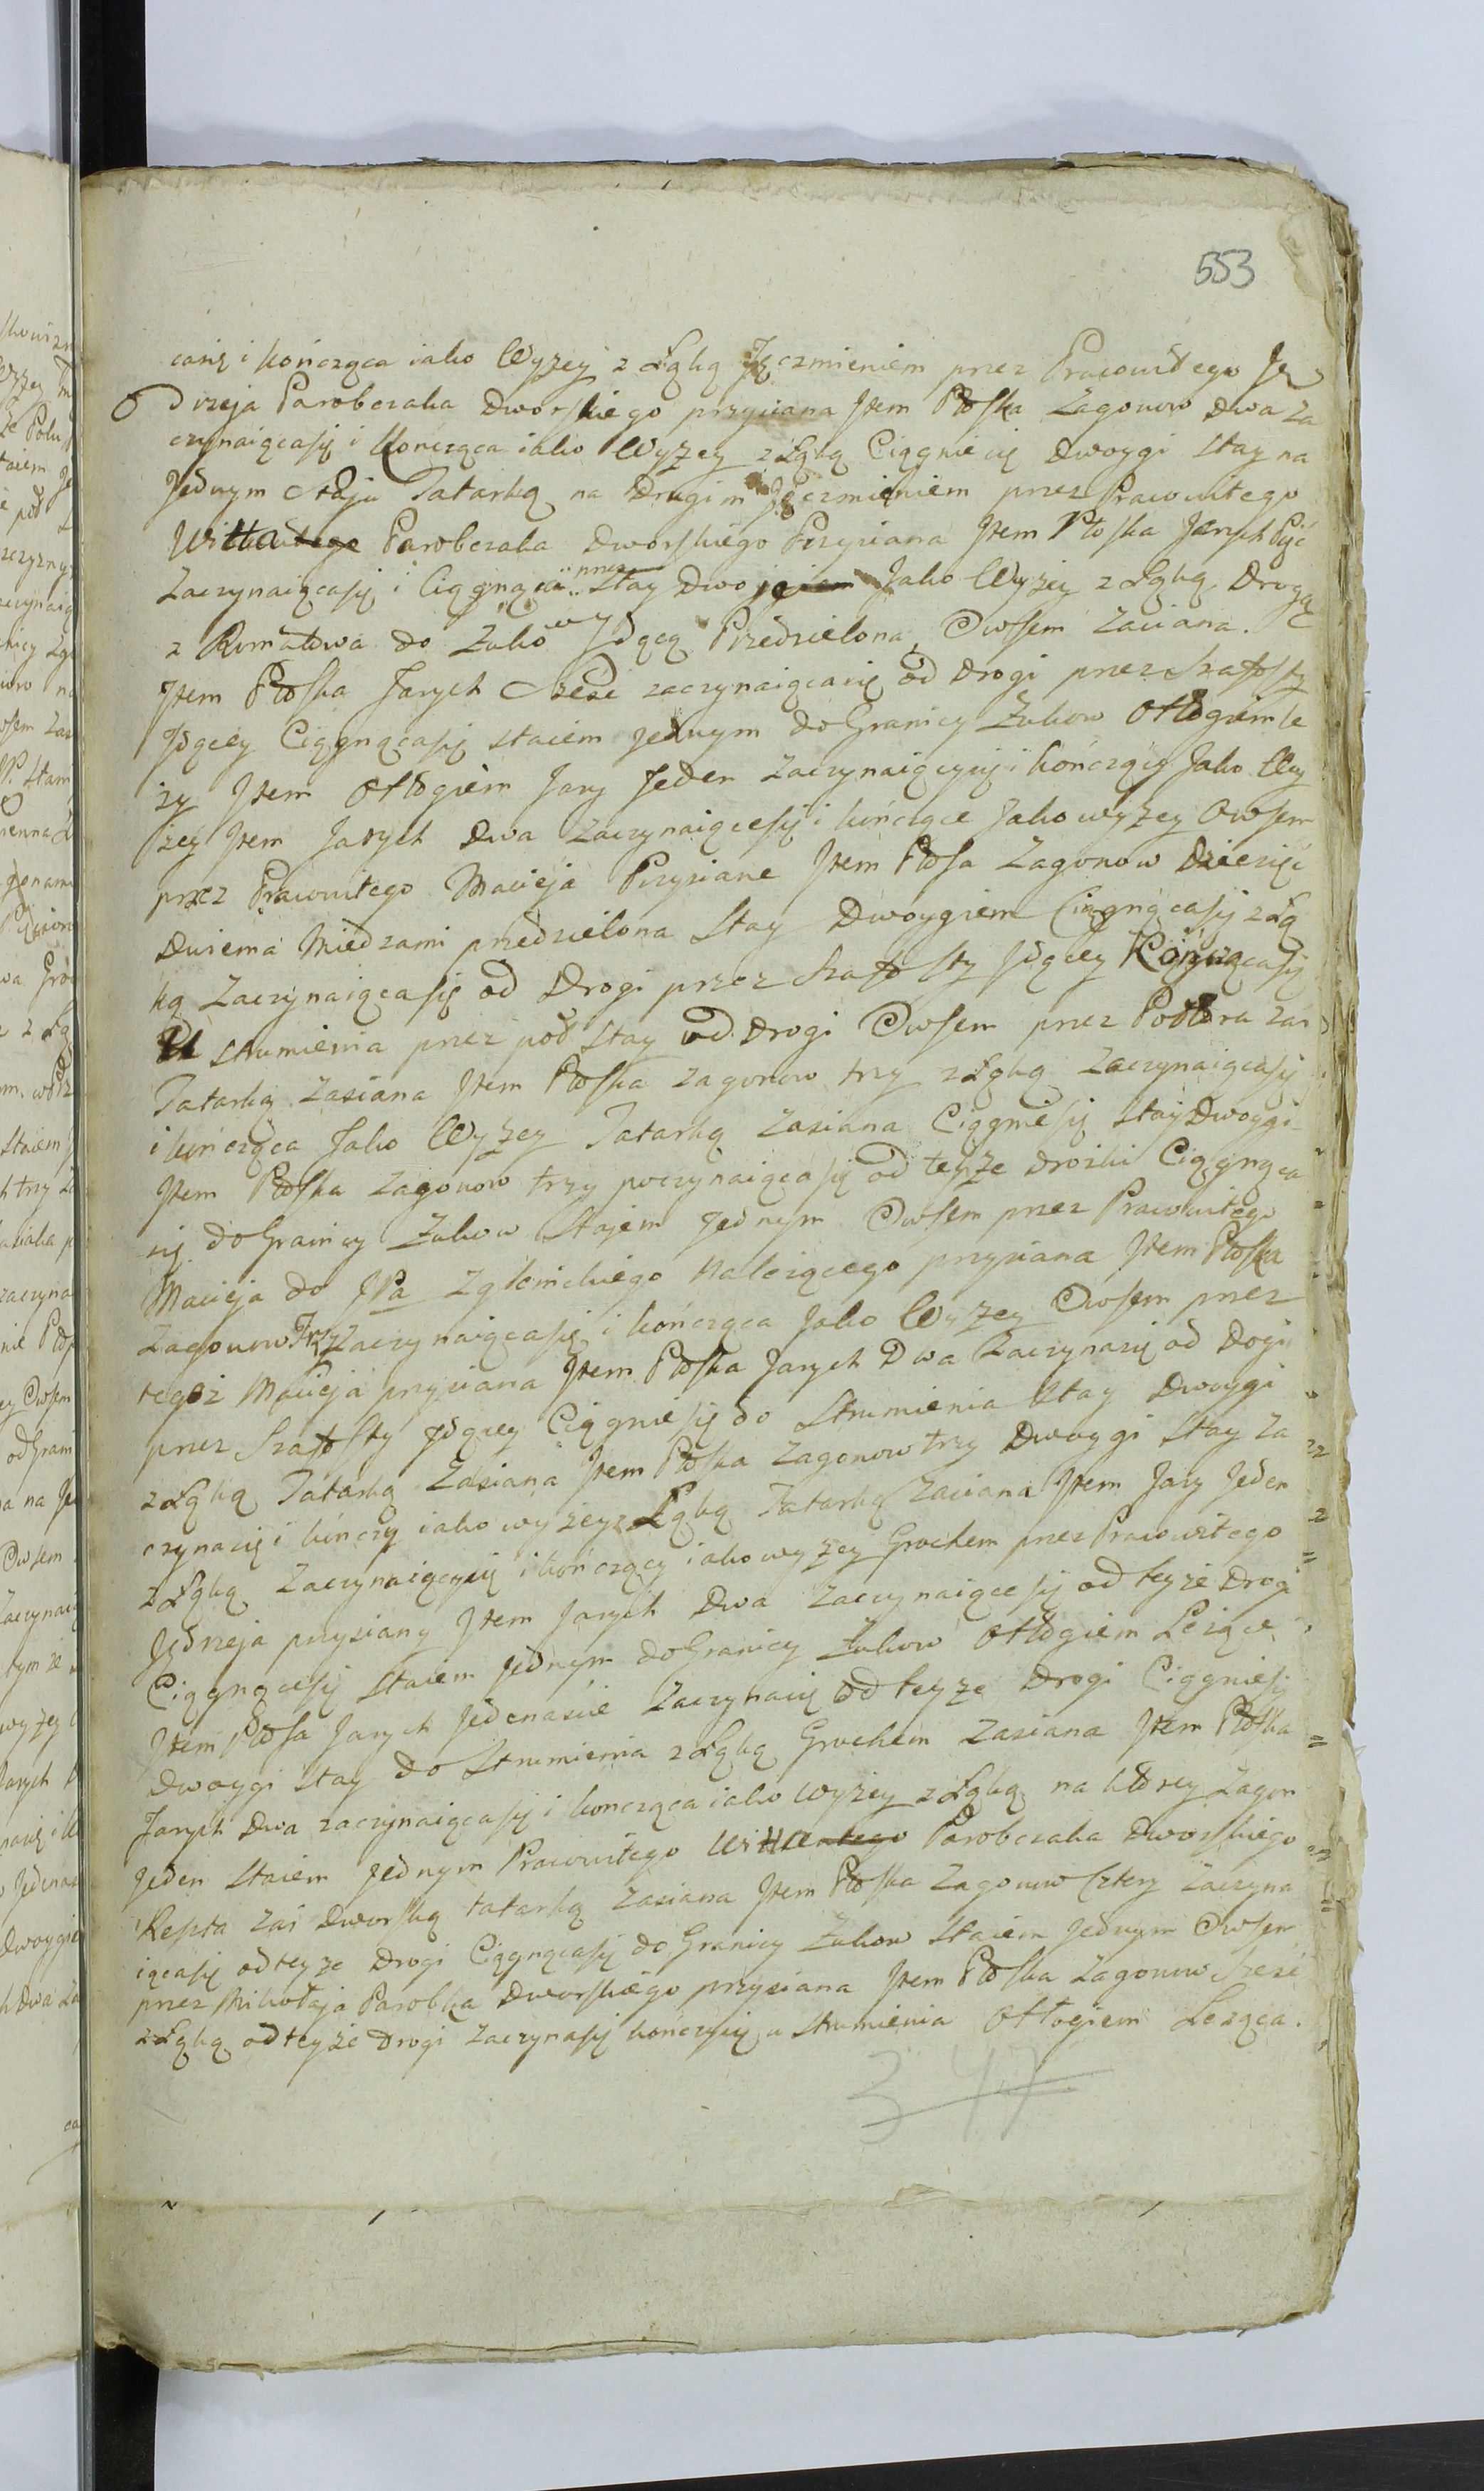 553
casię i kończąca iako Wyzey z Łąką Jęczmieniem przez Pracowitego Ję
drzeja Parobczaka Dworskiego przysiana Jtem Płoska Zagonow Dwa Za
czynaiącasię i Konczqca iako Wyzey z Łąką Ciągnie się Dwoygi Stay na
Jednym Staju Tatarką na Drugim Jęczmieniem przez Pracowitego
Parobczaka Dworskiego Przysiana Jtem Płoska Jarych Pięć
Zaczynaiącasię i Ciągnąca przez Stay Dwoje Jako Wyżey z Łąką Drogą
z do Zukow Jdącą Przedzielona Owsem Zasiana.
Jtem Płoska Jarych Szesc zaczynaiącasię od Drogi przez
Jdącey Ciągnącasię staiem jednym do Granicy Zukow Odłogiem le
zy Jtem Odłogiem Jary Jeden Zaczynaiącysię i kończący Jako Wy
zey Jtem Jarych Dwa Zaczynaiącesię i kończące Jako wyzey Owsem
przez Pracowitego Macieja Przysiane Jtem Płosa Zagonow Dziesięć
Dwiema Miedzami przedzielona Stay Dwoygiem Ciągnącasię z Łą
ką Zaczynaiącasię od Drogi przez Jdącey Kończącasię
U strumienia przez poł Stay od Drogi Owsem przez Połtora zaś
Tatarką Zasiana Jtem Płoska zagonow trzy z Łąką Zaczynaiącasię
i kończąca Jako Wyzey Tatarką Zasiana Ciągnie się Stay Dwoygi
Jtem Płoska Zagonow trzy poczynaiącasię od teyze drozki Ciągnąca
się do Granicy Zukow Stajem Jednym Owsem przez Pracowitego
Macieja do JPa Zgłenickiego Nalezącego przysiana Jtem Płoska
Zagonow Trzy Zaczynaiącasię i kończąca Jako Wyzey Owsem przez
tegoż Macieja przysiana Jtem Płoska Jarych Dwa Zaczynasię od Dogi
przez Jdącey Ciągnie się do Strumienia Stay Dwoygi
z Łąką Tatarką Zasiana Jtem Płoska Zagonow trzy Dwoygi Stay Za
czynasię i kńczy iako wyżey z Łąką Tatarką Zasiana Jtem Jary Jeden
z Łąką Zaczynaiącysię i kończący iako wyzey Grochem przez Pracowitego
Jędrzeja przysiany Jtem Jarych Dwa Zaczynaiące się od teyże Drogi
Ciągnącesię Staiem Jednym do Granicy Zukow Odłogiem Leżące
Jtem Płosa Jarych Jedenaście Zaczynasię od teyze Drogi Ciągniesię
Dwoygi Stay do Strumienia z Łąką Grochem Zasiana Jtem Płoska
Jarych Dwa zaczynaiącasię i konczqca iako wyżey z Łąką na którey Zagon
Jeden Staiem Jednym Pracowitego Parobczaka Dworskiego
Reszta Zaś Dworską tatarką Zasiana Jtem Płoska Zagonow Cztery Zaczyna
iącasię od teyze Drogi Ciągnącasię do Granicy Zukow Staiem Jednym Owsem
przez Mikołaja Parobka Dworskiego przysiana Jtem Płoska Zagonow Szesć
z Łąką od teyże Drogi Zaczynasię kończysię u Strumienia Odłogiem Lezqca.
347